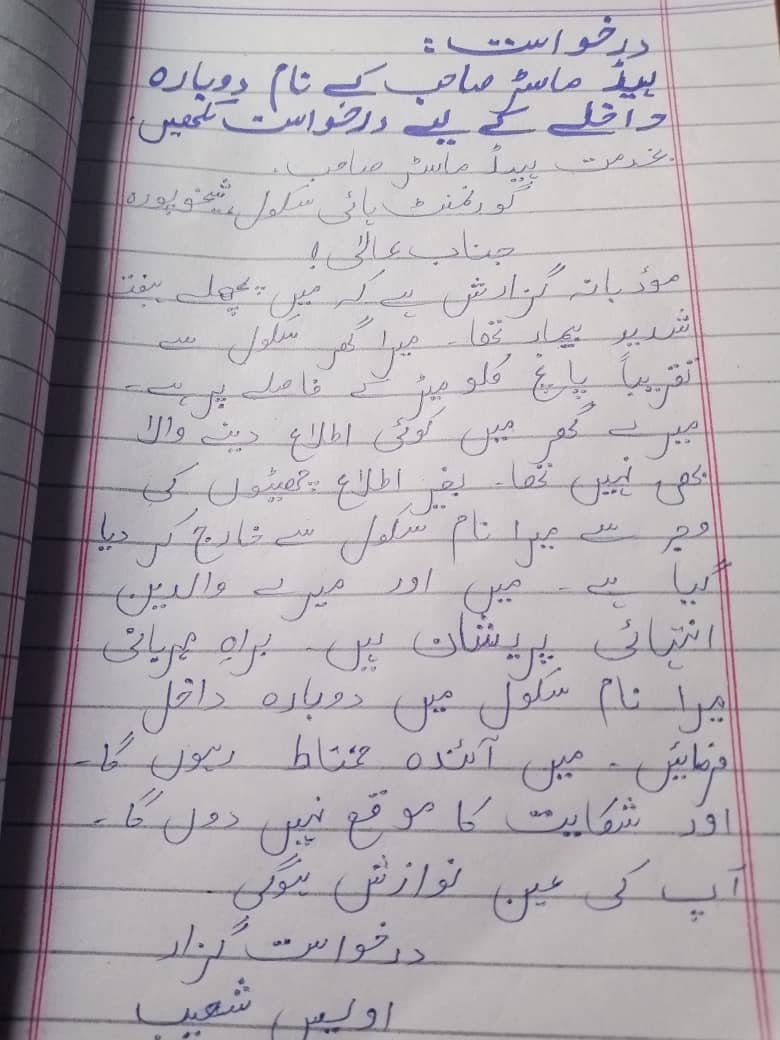 درخواست:
ہیڈ ماسٹر صاحب کے نام دوبارہ
داخلے کے لیے درخواست لکھیں۔
بخدمت ہیڈ ماسٹر صاحب،
گورنمنٹ ہائی سکول، شیخوپورہ
جناب عالی!
مؤدبانہ گزارش ہے کہ میں پچھلے ہفتے
شدید بیمار تھا۔ میرا گھر سکول سے
تقریباً پانچ کلو میٹر کے فاصلے پر ہے۔
میرے گھر میں کوئی اطلاع دینے والا
بھی نہیں تھا۔ بغیر اطلاع چھٹیوں کی
وجہ سے میرا نام سکول سے خارج کر دیا
گیا ہے۔ میں اور میرے والدین
انتہائی پریشان ہیں۔ براہِ مہربانی
میرا نام سکول میں دوبارہ داخل
فرمائیں۔ میں آئندہ محتاط رہوں گا۔
اور شکایت کا موقع نہیں دوں گا۔
آپ کی عین نوازش ہوگی۔
درخواست گزار
اویس شعیب